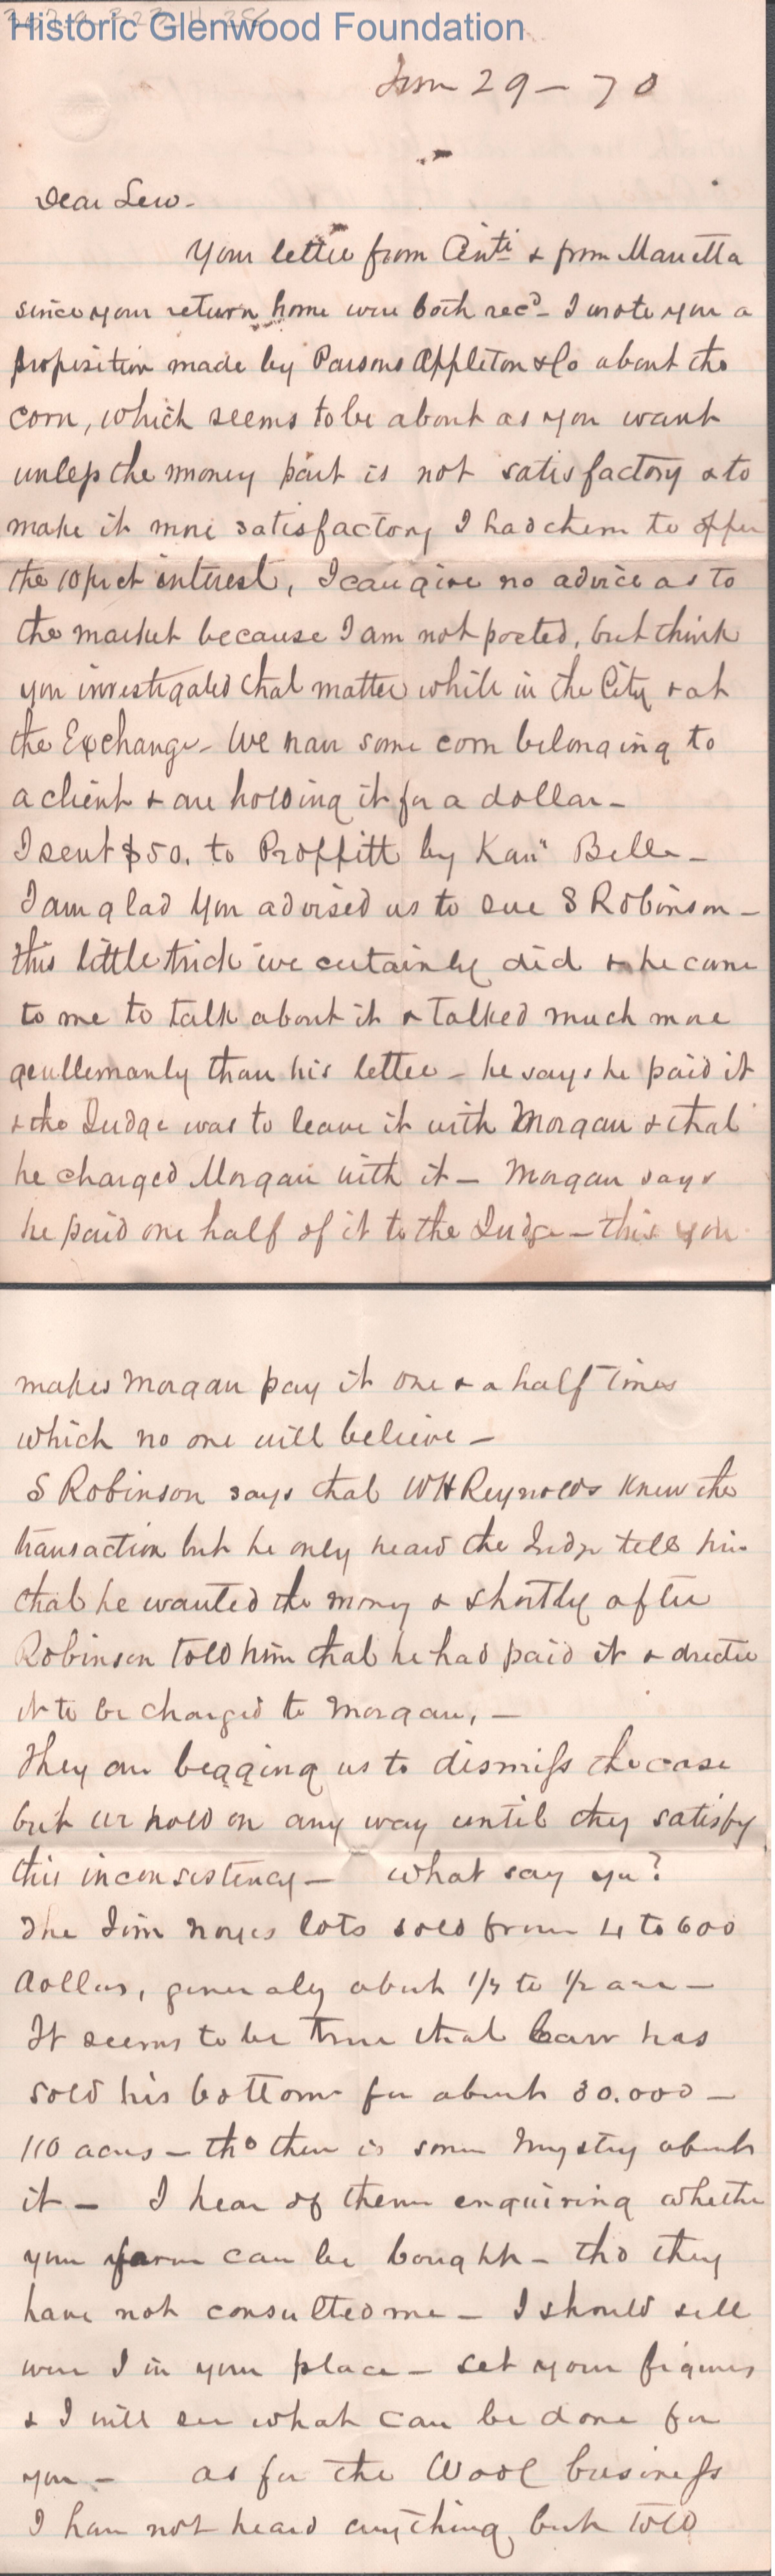 Historic Glenwood Foundation
Jun 29 - 70
Dear Lew -
Your letter from Cinti & from Marietta
since your return home were both recd - I wrote you a
proposition made by Parsons Appleton & Co about the
corn, which seems to be about as you want
unless the money part is not satisfactory & to
make it more satisfactory I had them to offer
the 10 pr ct interest, I can give no advice as to
the market because I am not posted, but think
you investigated that matter while in the City & at
the Exchange - We have some corn belonging to
a client & are holding it for a dollar -
I sent $50. to Proffitt by Kana Belle -
I am glad you advised us to sue S Robinson -
this little trick we certainly did & he came
to me to talk about it & talked much more
gentlemanly than his letter - he says he paid it
& the Judge was to leave it with Morgan & that
he charged Morgan with it - Morgan says
he paid one half of it to the Judge - this you
makes Morgan pay it one & a half times
which no one will believe -
S Robinson says that WH Reynolds knew the
transaction but he only heard the Judge tell him
that he wanted the money & shortly after
Robinson told him that he had paid it & directed
it to be charged to Morgan, -
They are begging us to dismiss the case
but we hold on any way until they satisfy
this inconsistency - What say you?
The Jim Noyes lots sold from 4 to 600
dollars, generaly about 1/3 to 1/2 acre -
It seems to be true that Carr has
sold his bottom for about 30.000 -
110 acres - tho there is some mystry about
it - I hear of them enquiring whether
your farm can be bought - tho they
have not consulted me - I should sell
were I in your place - set your figures
& I will see what can be done for
you - as for the Wool business
I have not heard anything but told